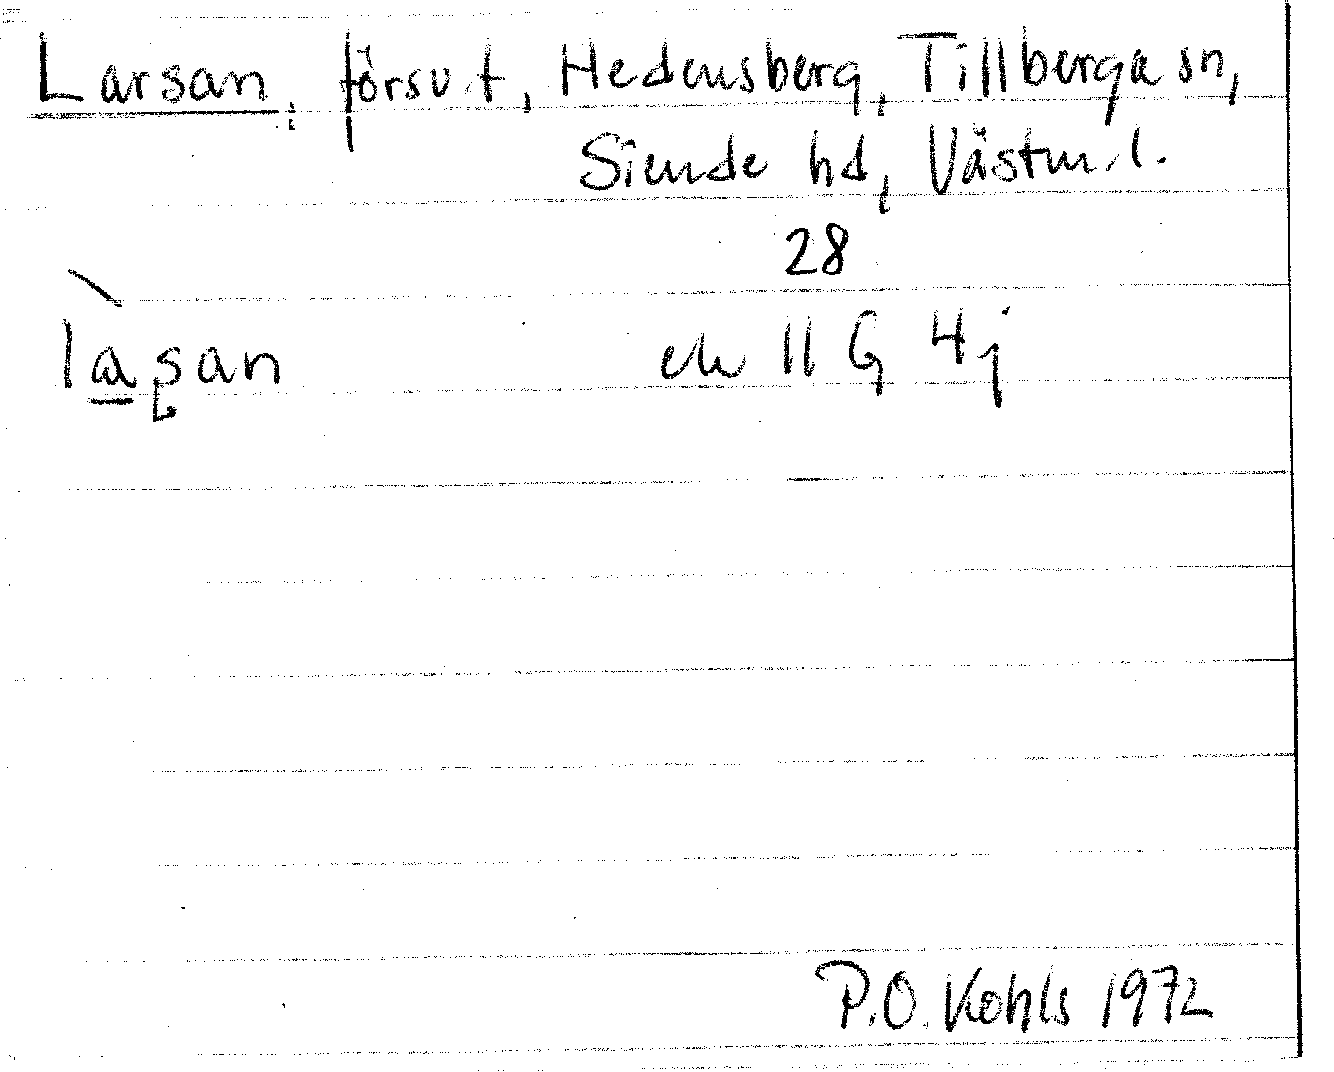 Larsan, försv.t, Hedensberg, Tillberga sn,
Siende hd, Västm.l.
28
lasan ek 11 G 4j
P.O. Kohls 1972